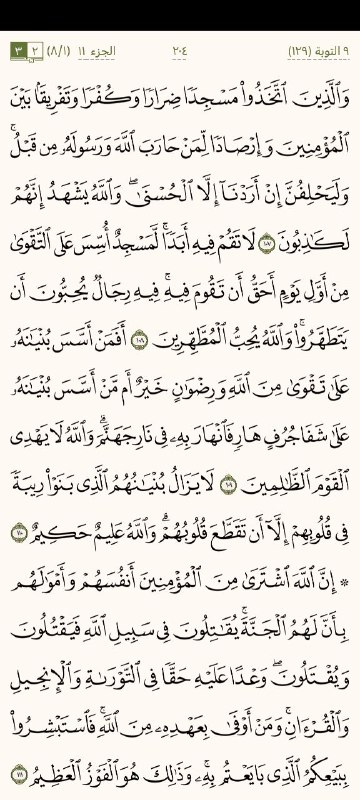 ٩ التوبة (١٢٩) ٢٠٤ الجزء ١١ (٨/١) ٢ ٣
وَٱلَّذِينَ ٱتَّخَذُوا۟ مَسْجِدًا ضِرَارًا وَكُفْرًا وَتَفْرِيقًۢا بَيْنَ
ٱلْمُؤْمِنِينَ وَإِرْصَادًا لِّمَنْ حَارَبَ ٱللَّهَ وَرَسُولَهُۥ مِن قَبْلُ ۚ
وَلَيَحْلِفُنَّ إِنْ أَرَدْنَآ إِلَّا ٱلْحُسْنَىٰ ۖ وَٱللَّهُ يَشْهَدُ إِنَّهُمْ
لَكَـٰذِبُونَ ١٠٧ لَا تَقُمْ فِيهِ أَبَدًا ۚ لَّمَسْجِدٌ أُسِّسَ عَلَى ٱلتَّقْوَىٰ
مِنْ أَوَّلِ يَوْمٍ أَحَقُّ أَن تَقُومَ فِيهِ ۚ فِيهِ رِجَالٌ يُحِبُّونَ أَن
يَتَطَهَّرُوا۟ ۚ وَٱللَّهُ يُحِبُّ ٱلْمُطَّهِّرِينَ ١٠٨ أَفَمَنْ أَسَّسَ بُنْيَـٰنَهُۥ
عَلَىٰ تَقْوَىٰ مِنَ ٱللَّهِ وَرِضْوَٰنٍ خَيْرٌ أَم مَّنْ أَسَّسَ بُنْيَـٰنَهُۥ
عَلَىٰ شَفَا جُرُفٍ هَارٍ فَٱنْهَارَ بِهِۦ فِى نَارِ جَهَنَّمَ ۗ وَٱللَّهُ لَا يَهْدِى
ٱلْقَوْمَ ٱلظَّـٰلِمِينَ ١٠٩ لَا يَزَالُ بُنْيَـٰنُهُمُ ٱلَّذِى بَنَوْا۟ رِيبَةً
فِى قُلُوبِهِمْ إِلَّآ أَن تَقَطَّعَ قُلُوبُهُمْ ۗ وَٱللَّهُ عَلِيمٌ حَكِيمٌ ١١٠
۞ إِنَّ ٱللَّهَ ٱشْتَرَىٰ مِنَ ٱلْمُؤْمِنِينَ أَنفُسَهُمْ وَأَمْوَٰلَهُم
بِأَنَّ لَهُمُ ٱلْجَنَّةَ ۚ يُقَـٰتِلُونَ فِى سَبِيلِ ٱللَّهِ فَيَقْتُلُونَ
وَيُقْتَلُونَ ۖ وَعْدًا عَلَيْهِ حَقًّا فِى ٱلتَّوْرَىٰةِ وَٱلْإِنجِيلِ
وَٱلْقُرْءَانِ ۚ وَمَنْ أَوْفَىٰ بِعَهْدِهِۦ مِنَ ٱللَّهِ ۚ فَٱسْتَبْشِرُوا۟
بِبَيْعِكُمُ ٱلَّذِى بَايَعْتُم بِهِۦ ۚ وَذَٰلِكَ هُوَ ٱلْفَوْزُ ٱلْعَظِيمُ ١١١